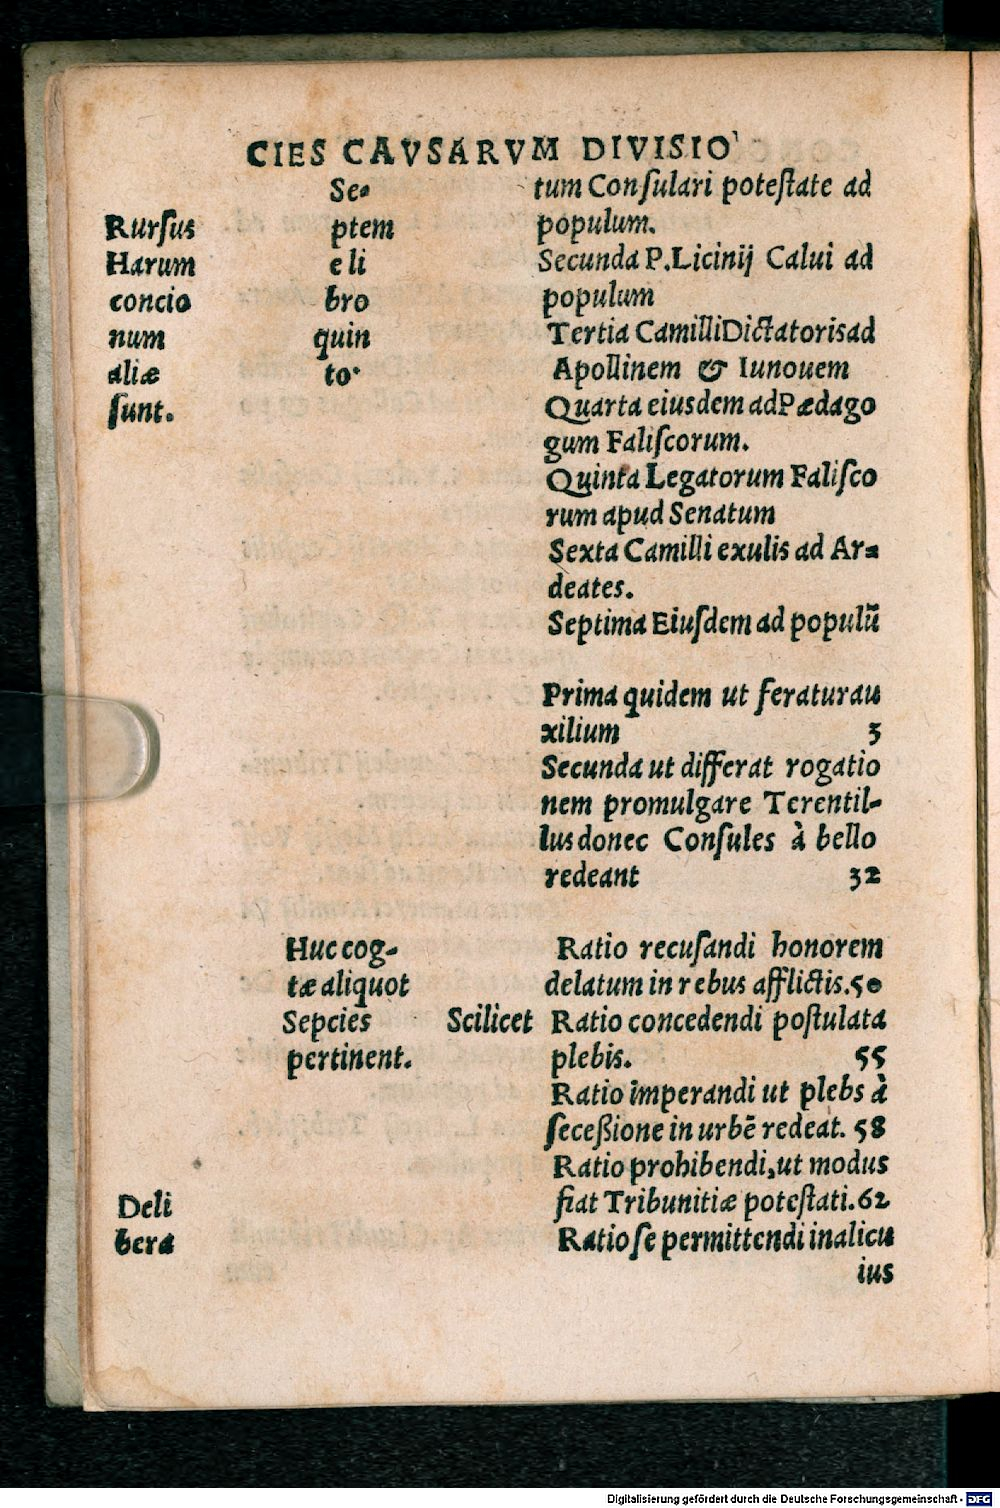 CIES CAVSARVM DIVISIO
Rursus
Harum
concio
num
aliæ
sunt.
Se-
ptem
e li
bro
quin
to.
tum Consulari potestate ad
populum.
Secunda P. Licinij Calui ad
populum
Tertia Camilli Dictatoris ad
Apollinem & Iunouem
Quarta eiusdem ad Pædago
gum Faliscorum.
Quinta Legatorum Falisco
rum apud Senatum
Sexta Camilli exulis ad Ar-
deates.
Septima Eiusdem ad populū
Prima quidem ut feratur au
xilium 3
Secunda ut differat rogatio
nem promulgare Terentil-
lus donec Consules à bello
redeant 32
Huc cog-
tæ aliquot
Sepcies
pertinent.
Scilicet
Ratio recusandi honorem
delatum in rebus afflictis. 50
Ratio concedendi postulata
plebis. 55
Ratio imperandi ut plebs à
seceßione in urbē redeat. 58
Ratio prohibendi, ut modus
fiat Tribunitiæ potestati. 62
Ratio se permittendi in alicu
ius
Deli
bera
Digitalisierung gefördert durch die Deutsche Forschungsgemeinschaft - DFG